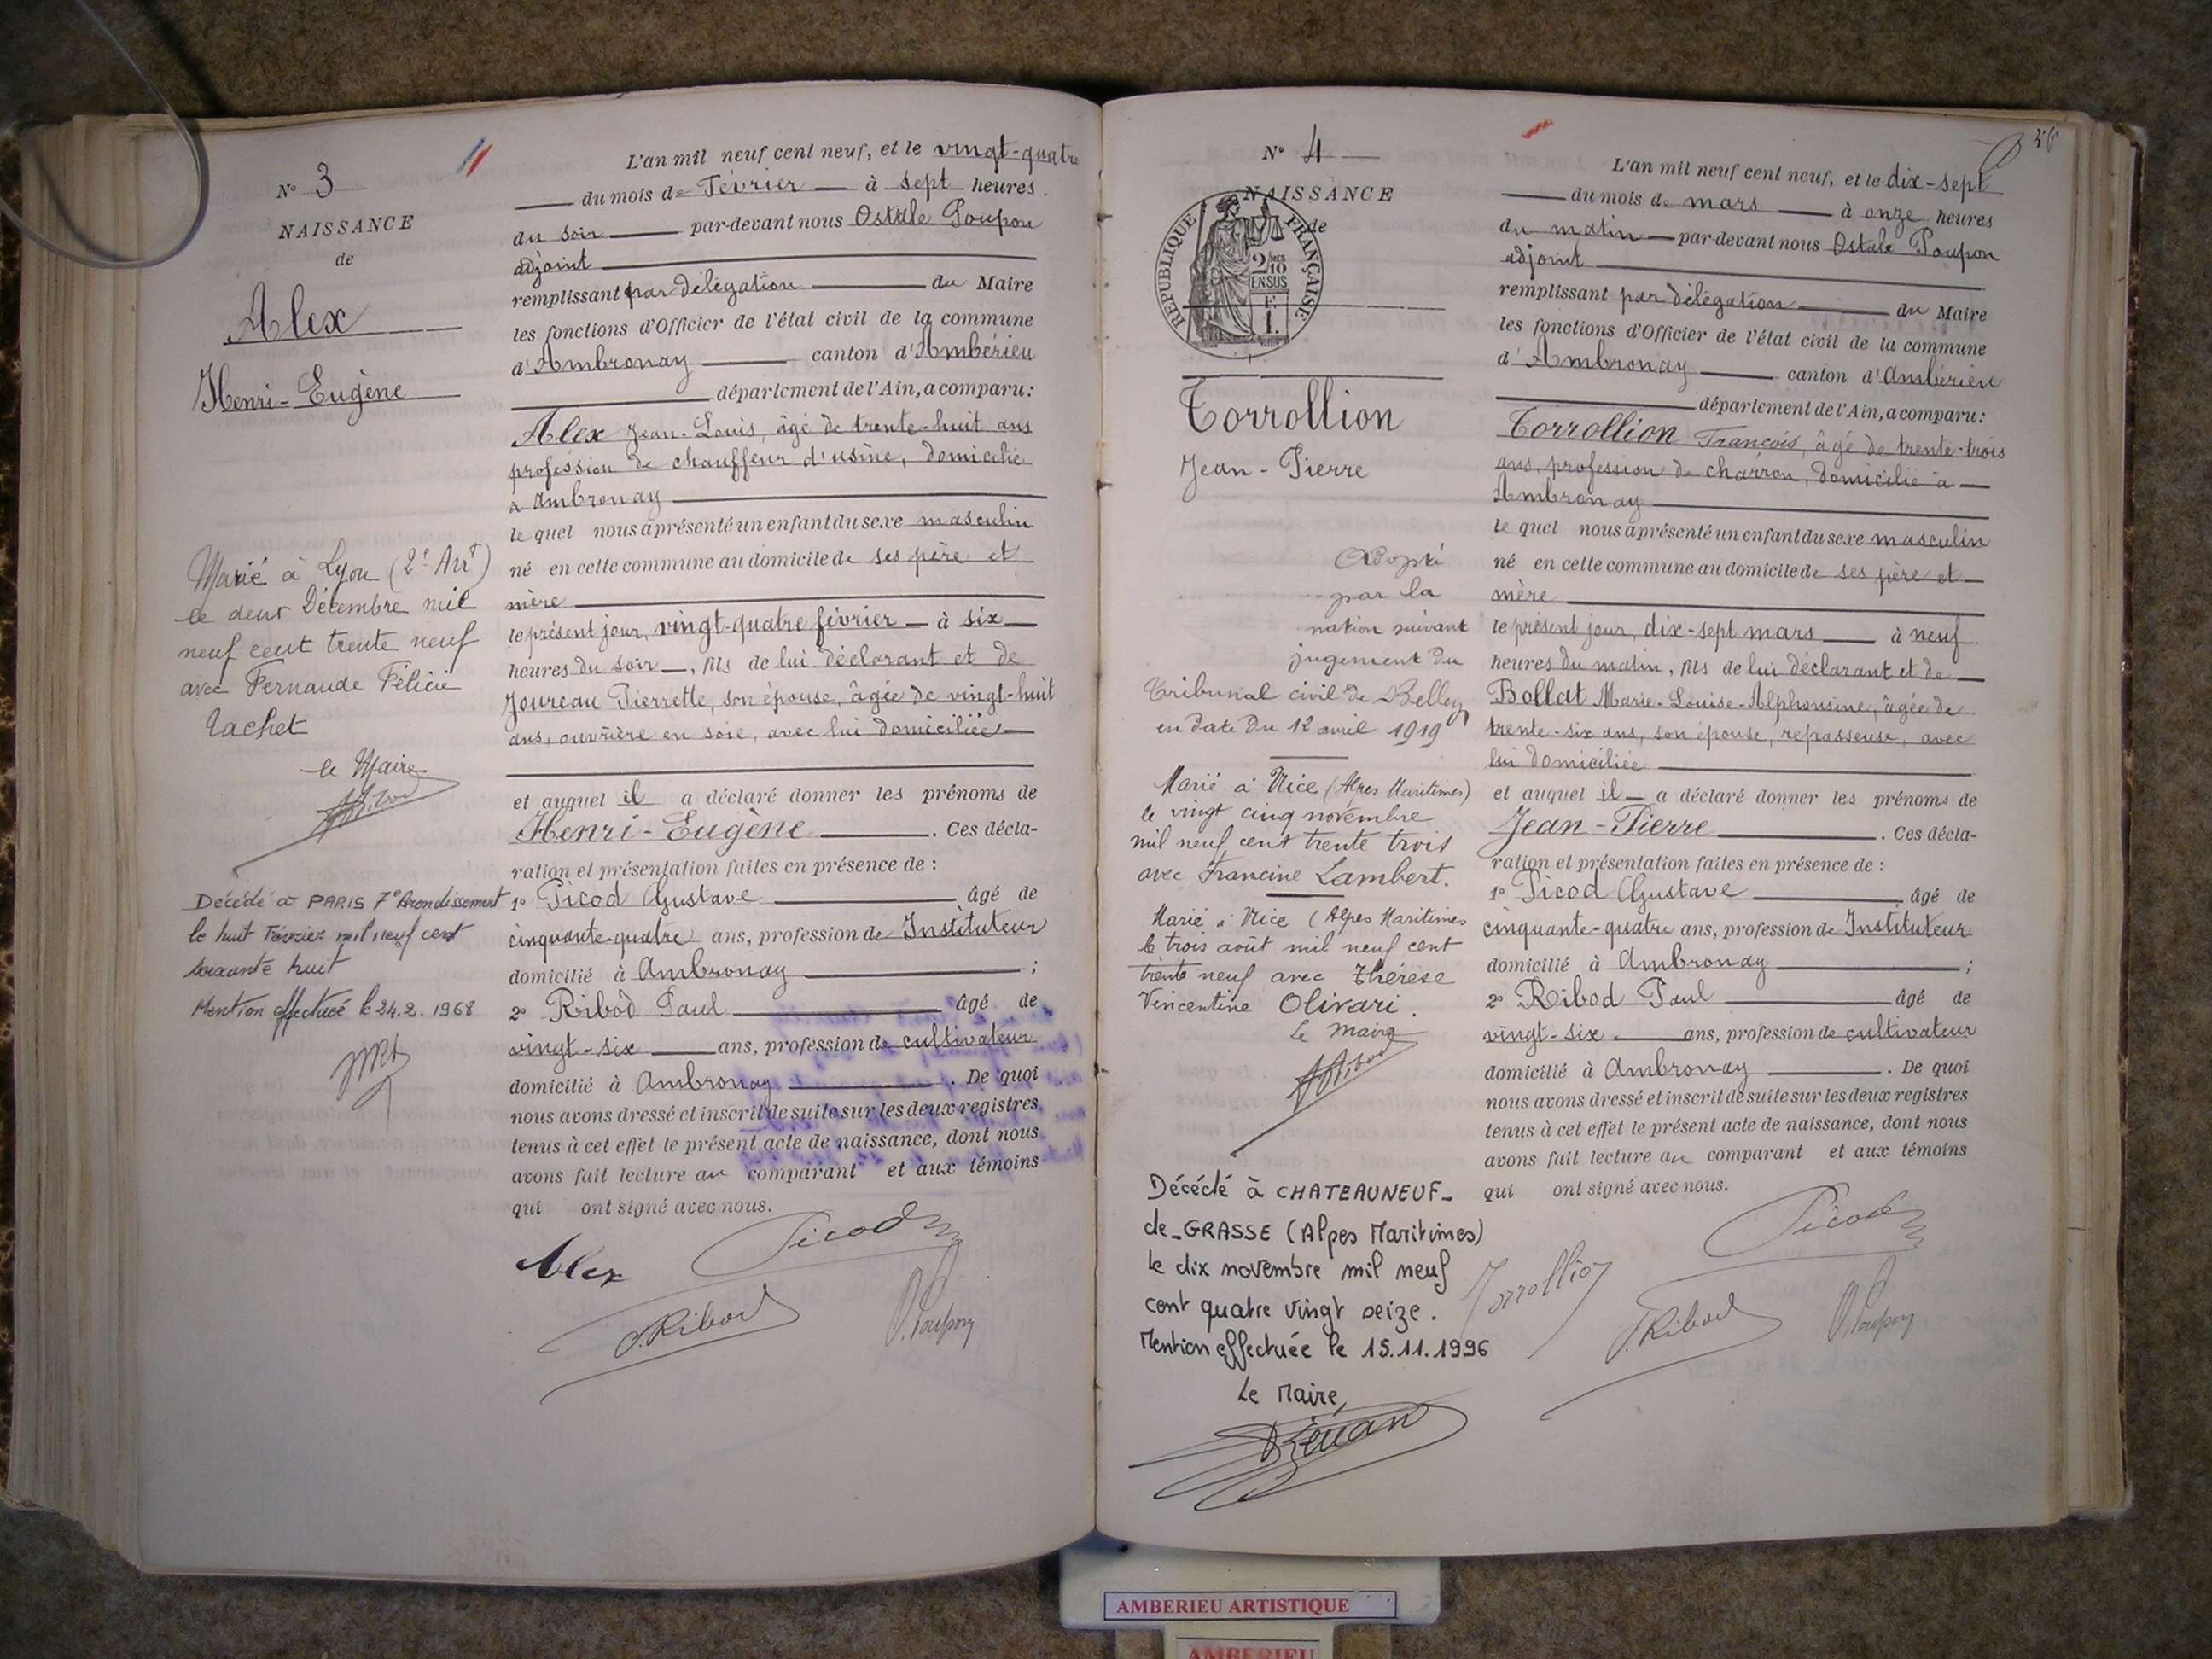 N° 3
NAISSANCE
de
Alex
Henri-Eugène
Marié à Lyon (2e Arrt)
le deux Décembre mil
neuf cent trente neuf
avec Fernande Félicie
Rachet
le Maire
Décédé à PARIS 7e Arrondissement
le huit Février mil neuf cent
soixante huit
Mention effectuée le 24.2.1968
L'an mil neuf cent neuf, et le vingt-quatre
du mois de Février à sept heures
du soir par-devant nous Ostale Poupon
adjoint
remplissant par délégation du Maire
les fonctions d'Officier de l'état civil de la commune
d'Ambronay canton d'Ambérieu
département de l'Ain, a comparu:
Alex Jean-Louis, âgé de trente-huit ans
profession de chauffeur d'usine, domicilié
à Ambronay
le quel nous a présenté un enfant du sexe masculin
né en cette commune au domicile de ses père et
mère
le présent jour, vingt-quatre février à six
heures du soir, fils de lui déclarant et de
Joureau Pierrette, son épouse, âgée de vingt-huit
ans, ouvrière en soie, avec lui domiciliée
et auquel il a déclaré donner les prénoms de
Henri-Eugène. Ces décla-
ration et présentation faites en présence de :
1° Picod Gustave âgé de
cinquante-quatre ans, profession de Instituteur
domicilié à Ambronay ;
2° Ribod Paul âgé de
vingt-six ans, profession de cultivateur
domicilié à Ambronay. De quoi
nous avons dressé et inscrit de suite sur les deux registres
tenus à cet effet le présent acte de naissance, dont nous
avons fait lecture au comparant et aux témoins
qui ont signé avec nous.
Alex Picod
P. Ribod O. Poupon
N° 4
NAISSANCE
de
RÉPUBLIQUE FRANÇAISE
2/10 EN SUS
Torrollion
Jean-Pierre
Adopté
par la
nation suivant
jugement du
Tribunal civil de Belley
en date du 12 avril 1919
Marié à Nice (Alpes Maritimes)
le vingt cinq novembre
mil neuf cent trente trois
avec Francine Lambert.
Marié à Nice (Alpes Maritimes
le trois août mil neuf cent
trente neuf avec Thérèse
Vincentine Olivari.
Le Maire
Décédé à CHATEAUNEUF-
de-GRASSE (Alpes Maritimes)
le dix novembre mil neuf
cent quatre vingt seize.
Mention effectuée le 15.11.1996
Le Maire,
L'an mil neuf cent neuf, et le dix-sept
du mois de mars à onze heures
du matin par-devant nous Ostale Poupon
adjoint
remplissant par délégation du Maire
les fonctions d'Officier de l'état civil de la commune
d'Ambronay canton d'Ambérieu
département de l'Ain, a comparu:
Torrollion François, âgé de trente-trois
ans, profession de charron, domicilié à
Ambronay
le quel nous a présenté un enfant du sexe masculin
né en cette commune au domicile de ses père et
mère
le présent jour, dix-sept mars à neuf
heures du matin, fils de lui déclarant et de
Bollat Marie-Louise-Alphonsine, âgée de
trente-six ans, son épouse, repasseuse, avec
lui domiciliée
et auquel il a déclaré donner les prénoms de
Jean-Pierre. Ces décla-
ration et présentation faites en présence de :
1° Picod Gustave âgé de
cinquante-quatre ans, profession de Instituteur
domicilié à Ambronay ;
2° Ribod Paul âgé de
vingt-six ans, profession de cultivateur
domicilié à Ambronay. De quoi
nous avons dressé et inscrit de suite sur les deux registres
tenus à cet effet le présent acte de naissance, dont nous
avons fait lecture au comparant et aux témoins
qui ont signé avec nous.
Picod
Torrollion P. Ribod O. Poupon
AMBERIEU ARTISTIQUE
AMBERIEU